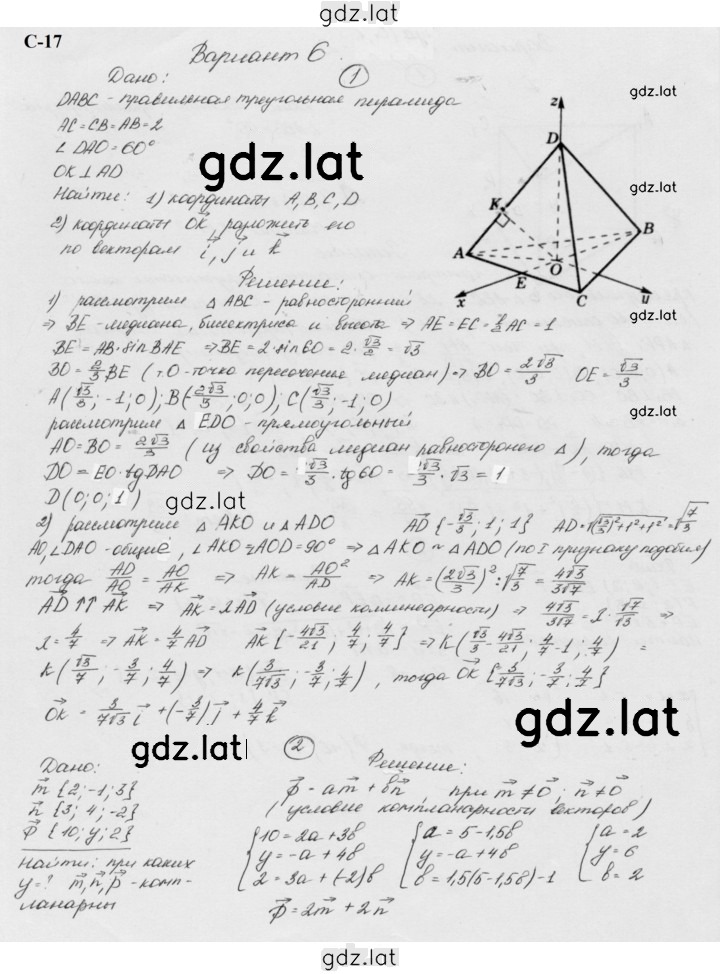 gdz.lat
С-17
Вариант 6.
Дано:
①
DABC - правильная треугольная пирамида
AC=CB=AB=2
∠DAO=60°
OK⊥AD
Найти: 1) координаты A, B, C, D
2) координаты OK⃗, разложить его
по векторам i⃗, j⃗ и k⃗
gdz.lat
gdz.lat
gdz.lat
z
D
K
A
B
O
E
C
x
y
Решение:
1) рассмотрим △ABC - равносторонний
⇒ BE - медиана, биссектриса и высота ⇒ AE=EC=½AC=1
BE=AB·sinBAE ⇒BE=2·sin60=2·√3/2=√3
BO=2/3BE (т.О-точка пересечение медиан)⇒ BO=2√3/3 OE=√3/3
A(√3/3; -1; 0); B(-2√3/3; 0; 0); C(√3/3; -1; 0)
gdz.lat
рассмотрим △ EDO - прямоугольный
AO=BO=2√3/3 (из свойства медиан равностороного △), тогда
DO=EO·tgDAO ⇒ DO=√3/3·tg60=√3/3·√3=1
D(0; 0; 1)
gdz.lat
2) рассмотрим △AKO и △ADO AD⃗{-√3/3; 1; 1} AD=√((√3/3)²+1²+1²)=√(7/3)
AO, ∠DAO-общие, ∠AKO=∠AOD=90° ⇒△AKO~△ADO (по I признаку подобия)
тогда AD/AO=AO/AK ⇒ AK=AO²/AD ⇒ AK=(2√3/3)²:√(7/3)=4√3/3√7
AD⃗↑↑AK⃗ ⇒ AK⃗=λAD⃗ (условие коллинеарности) ⇒ 4√3/3√7=λ·√7/√3 ⇒
λ=4/7 ⇒AK⃗=4/7AD⃗ AK⃗{-4√3/21; 4/7; 4/7} ⇒K(√3/3-4√3/21; 4/7-1; 4/7)=
K(√3/7; -3/7; 4/7) ⇒ K(3/7√3; -3/7; 4/7), тогда OK⃗{3/7√3; -3/7; 4/7}
OK⃗=3/7√3 i⃗+(-3/7)j⃗+4/7k⃗
gdz.lat
gdz.lat
②
Дано:
m⃗{2; -1; 3}
n⃗{3; 4; -2}
p⃗{10; y; 2}
Найти: при каких
y=? m⃗,n⃗,p⃗-комп-
ланарны
Решение:
p⃗=am⃗+bn⃗, при m⃗≠0; n⃗≠0
(условие компланарности векторов)
{10=2a+3b {a=5-1,5b {a=2
{y=-a+4b {y=-a+4b {y=6
{2=3a+(-2)b {b=1,5(5-1,5b)-1 {b=2
p⃗=2m⃗+2n⃗
gdz.lat